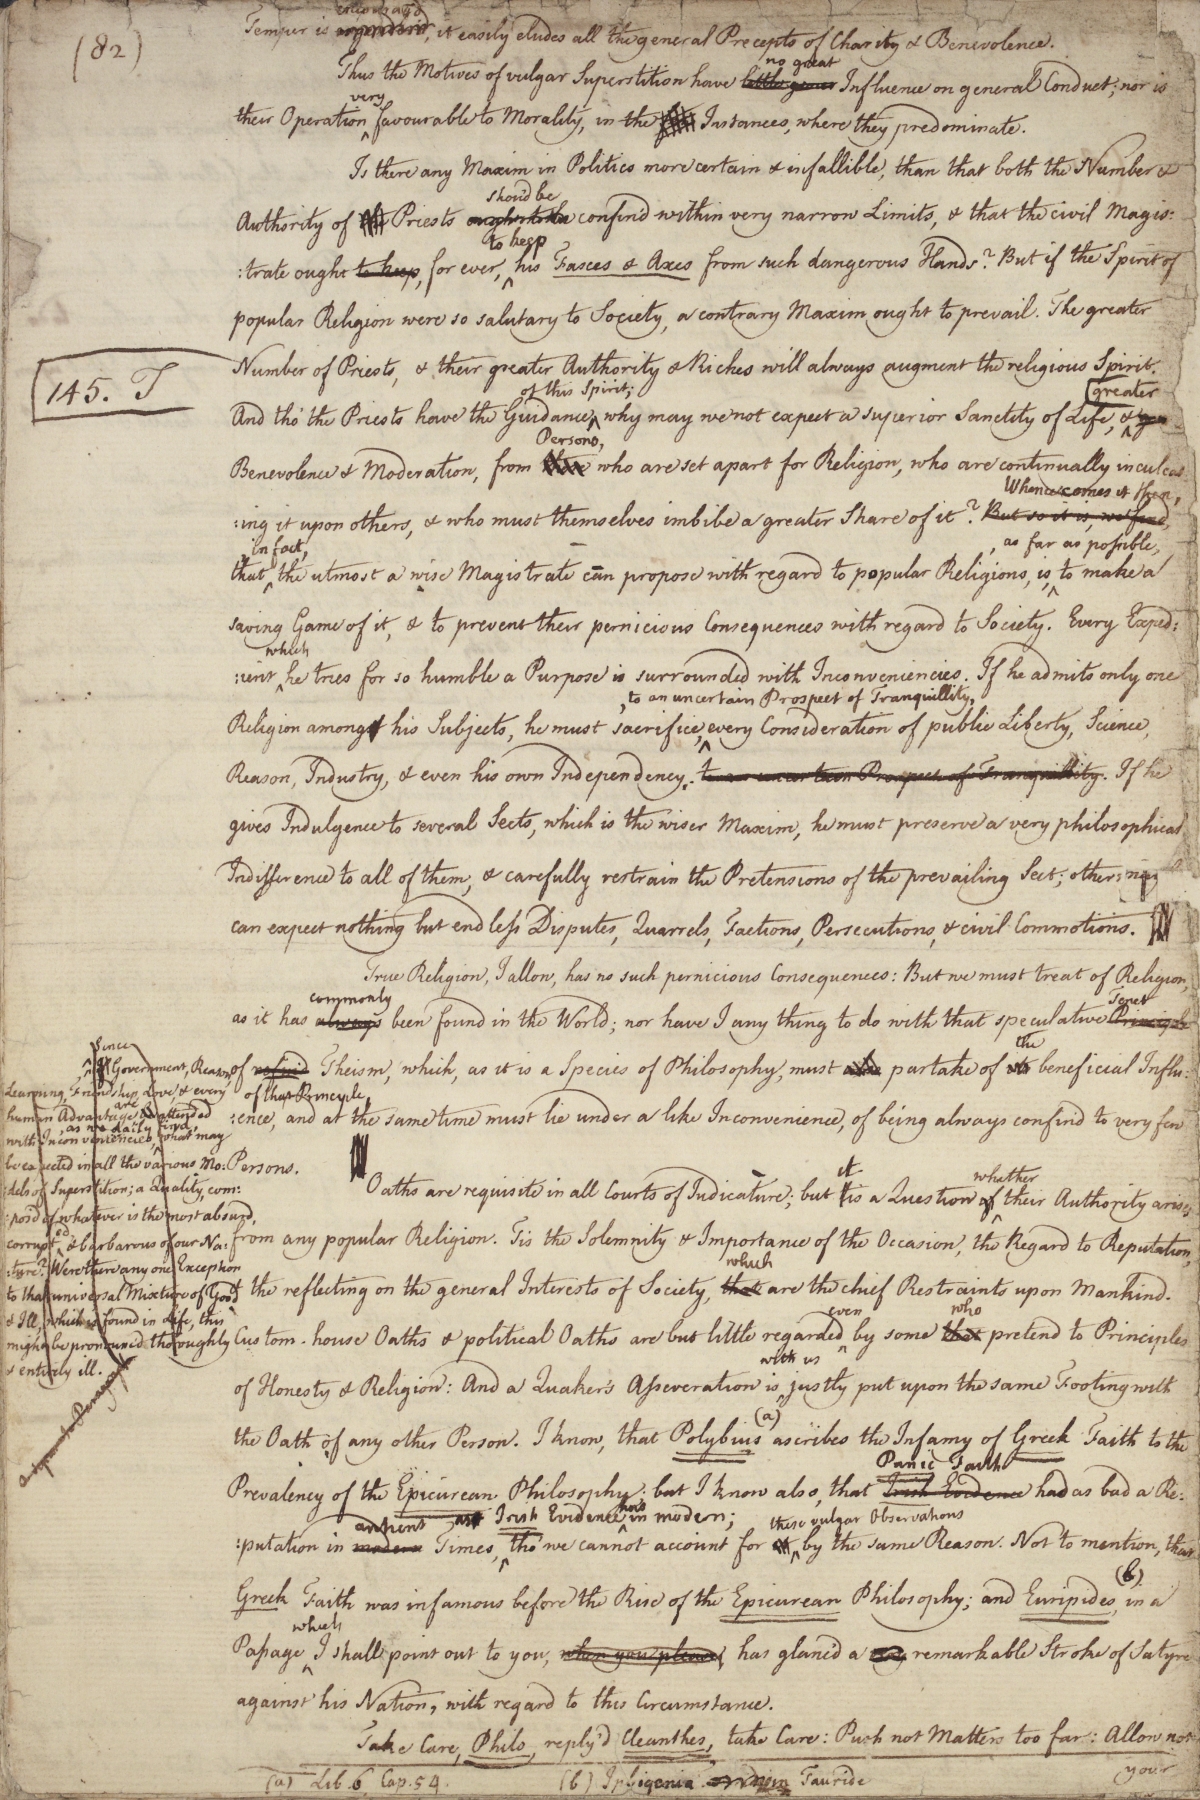 (82)
Temper is encourag'd, it easily eludes all the general Precepts of Charity & Benevolence.
no great
Thus the Motives of vulgar Superstition have Influence on general Conduct; nor is
very
their Operation favourable to Morality, in the Instances, where they predominate.
Is there any Maxim in Politics more certain & infallible, than that both the Number &
should be
Authority of Priests confin'd within very narrow Limits, & that the civil Magis:
to keep
:trate ought to keep, for ever, his Fasces & Axes from such dangerous Hands? But if the Spirit of
popular Religion were so salutary to Society, a contrary Maxim ought to prevail. The greater
145. T
Number of Priests, & their greater Authority & Riches will always augment the religious Spirit.
of this Spirit;
greater
And tho' the Priests have the Guidance, why may we not expect a superior Sanctity of Life, &
Persons,
Benevolence & Moderation, from who are set apart for Religion, who are continually inculcat
Whence comes it then,
:ing it upon others, & who must themselves imbibe a greater Share of it? But so it is, we find,
in fact,
, as far as possible,
that the utmost a wise Magistrate can propose with regard to popular Religions, is to make a
saving Game of it, & to prevent their pernicious Consequences with regard to Society. Every Exped:
which
:ient he tries for so humble a Purpose is surrounded with Inconveniencies. If he admits only one
, to an uncertain Prospect of Tranquillity,
Religion amongst his Subjects, he must sacrifice, every Consideration of public Liberty, Science,
Reason, Industry, & even his own Independency. to an uncertain Prospect of Tranquillity. If he
gives Indulgence to several Sects, which is the wiser Maxim, he must preserve a very philosophical
Indifference to all of them, & carefully restrain the Pretensions of the prevailing Sect; other:
can expect nothing but endless Disputes, Quarrels, Factions, Persecutions, & civil Commotions.
True Religion, I allow, has no such pernicious Consequences: But we must treat of Religion,
commonly
Tenet
as it has always been found in the World; nor have I any thing to do with that speculative Principle
the
of refin'd Theism, which, as it is a Species of Philosophy, must partake of beneficial Influ:
of that Principle,
:ence, and at the same time must lie under a like Inconvenience, of being always confin'd to very few
Persons.
Since
Government, Reason,
Learning, Friendship, Love & every
are
human Advantage attended
, as we daily find,
with Inconveniencies, what may
be expected in all the various Mo:
:dels of Superstition; a Quality, com:
:pos'd of whatever is the most absurd,
corrupted, & barbarous of our Na:
:ture? Were there any one Exception
to that universal Mixture of Good
& Ill, which is found in Life, this
might be pronounc'd thoroughly
& entirely ill.
it
whether
Oaths are requisite in all Courts of Judicature; but tis a Question if their Authority arises
from any popular Religion. Tis the Solemnity & Importance of the Occasion, the Regard to Reputation,
which
& the reflecting on the general Interests of Society, that are the chief Restraints upon Mankind.
even
who
Custom-house Oaths & political Oaths are but little regarded by some that pretend to Principles
with us
of Honesty & Religion: And a Quaker's Asseveration is justly put upon the same Footing with
(a)
the Oath of any other Person. I know, that Polybius ascribes the Infamy of Greek Faith to the
Punic Faith
Prevalency of the Epicurean Philosophy: but I know also, that Irish Evidence had as bad a Re:
antient as Irish Evidence has in modern;
these vulgar Observations
:putation in modern Times, tho' we cannot account for by the same Reason. Not to mention, that
(b)
Greek Faith was infamous before the Rise of the Epicurean Philosophy; and Euripides, in a
which
Passage I shall point out to you, when you please, has glanc'd a remarkable Stroke of Satyre
against his Nation, with regard to this Circumstance.
Take Care, Philo, reply'd Cleanthes, take Care: Push not Matters too far: Allow not
your
(a) Lib. 6. Cap. 54.
(b) Iphigenia in Tauride